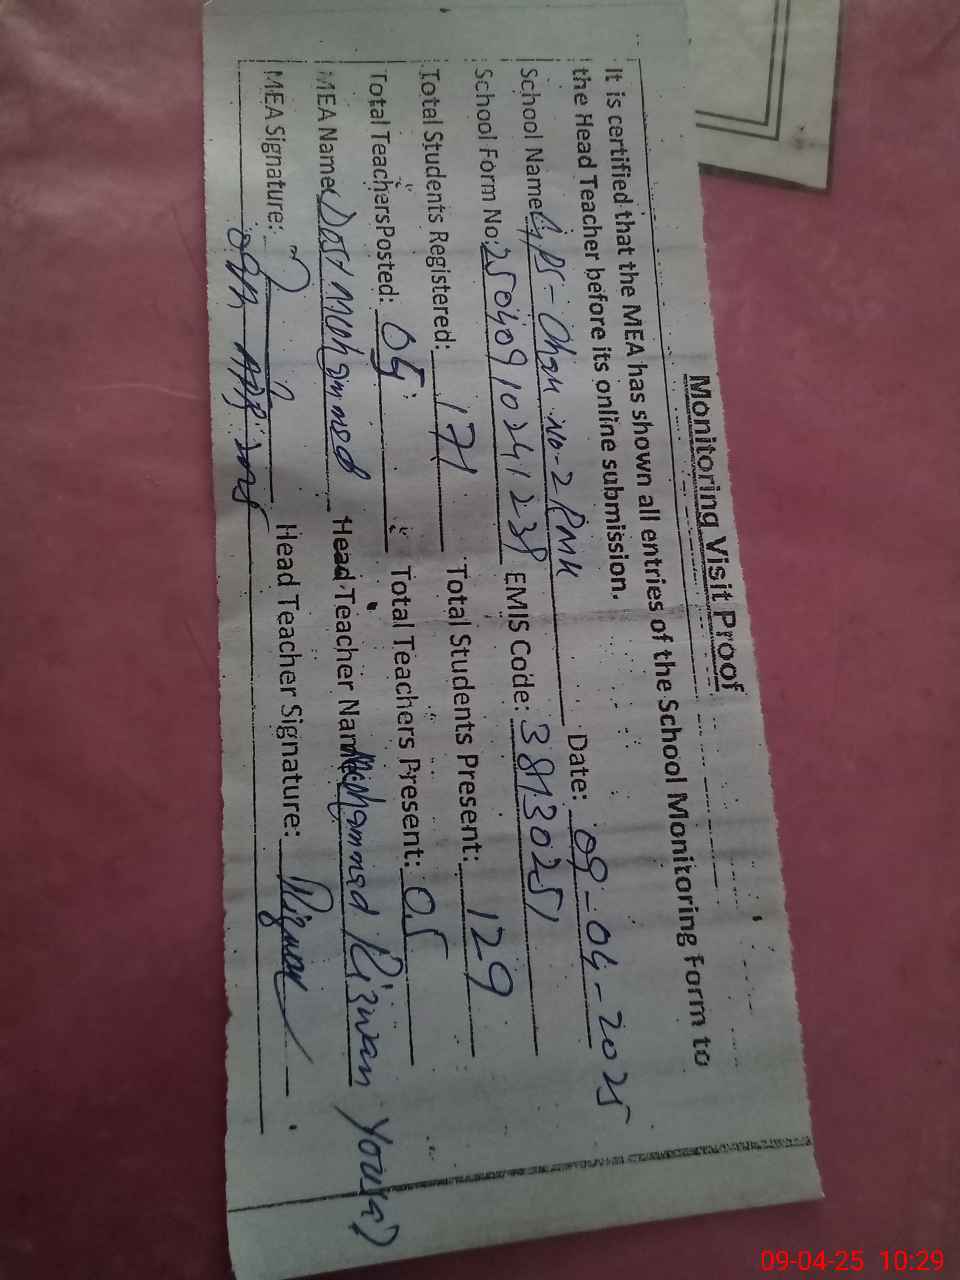 Monitoring Visit Proof
It is certified that the MEA has shown all entries of the School Monitoring Form to
the Head Teacher before its online submission.
School Name: GPS - Chak No-2 RMK Date: 09-04-2025
School Form No: 25040910241238 EMIS Code: 38130251
Total Students Registered: 171 Total Students Present: 129
Total Teachers Posted: 05 Total Teachers Present: 05
MEA Name: Dost Muhammad Head Teacher Name: Muhammad Rizwan Yousaf
MEA Signature: Head Teacher Signature: Rizwan
2025
09-04-25 10:29